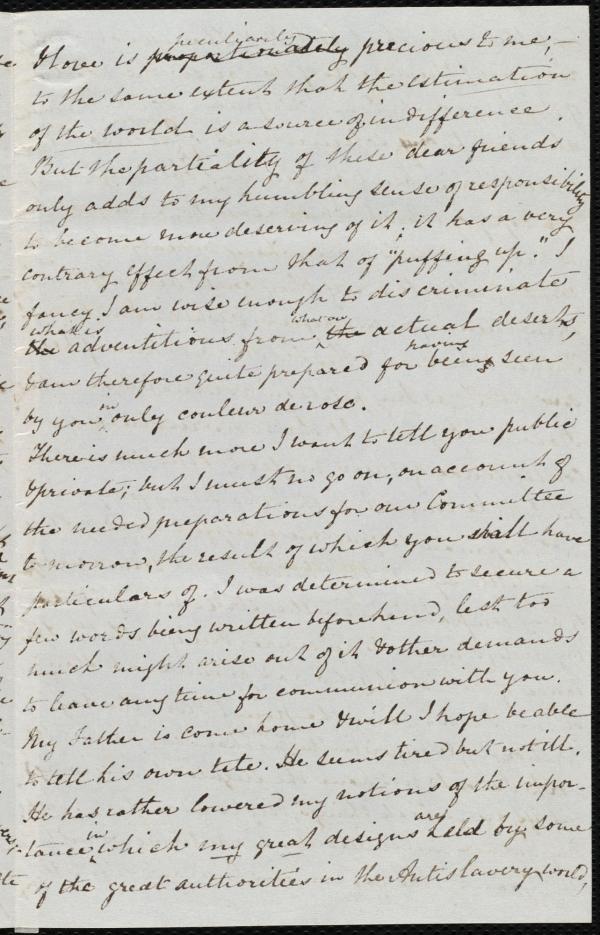 & love is peculiarly proportionately precious to me, —
to the same extent that the estimation
of the world is a source of indifference.
But the partiality of these dear friends
only adds to my humbling sense of responsibility
to become more deserving of it; it has a very
contrary effect from that of "puffing up." I
fancy I am wise enough to discriminate
what is the adventitious from what are the actual deserts,
& am therefore quite prepared for having been seen
by you in only couleur de rose.
There is much more I want to tell you public
& private; but I must no go on, on account of
the needed preparations for our Committee
to-morrow, the result of which you shall have
particulars of. I was determined to secure a
few words being written beforehand, lest too
much might arise out of it & other demands
to leave any time for communion with you.
My Father is come home & will I hope be able
to tell his own tale. He seems tired but not ill.
He has rather lowered my notions of the impor-
tance in which my great designs are held by some
of the great authorities in the Antislavery world,